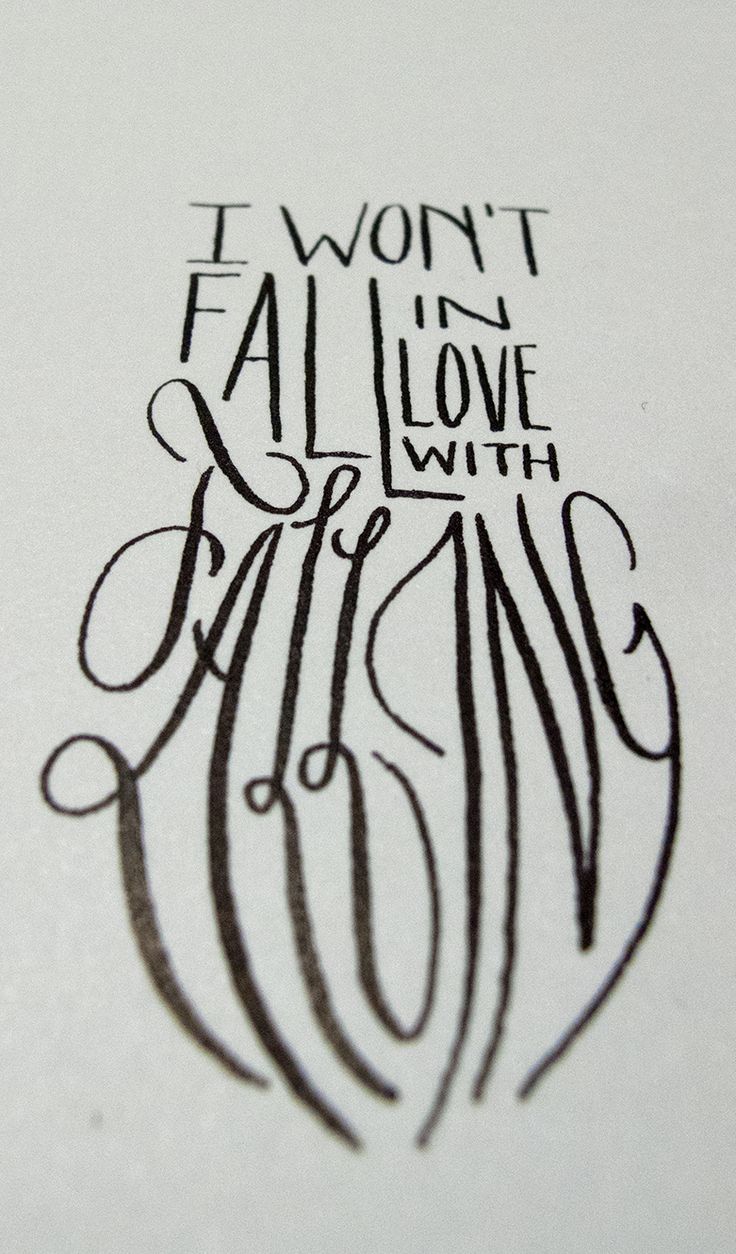 I WON'T
FALL IN
LOVE
WITH
FALLING